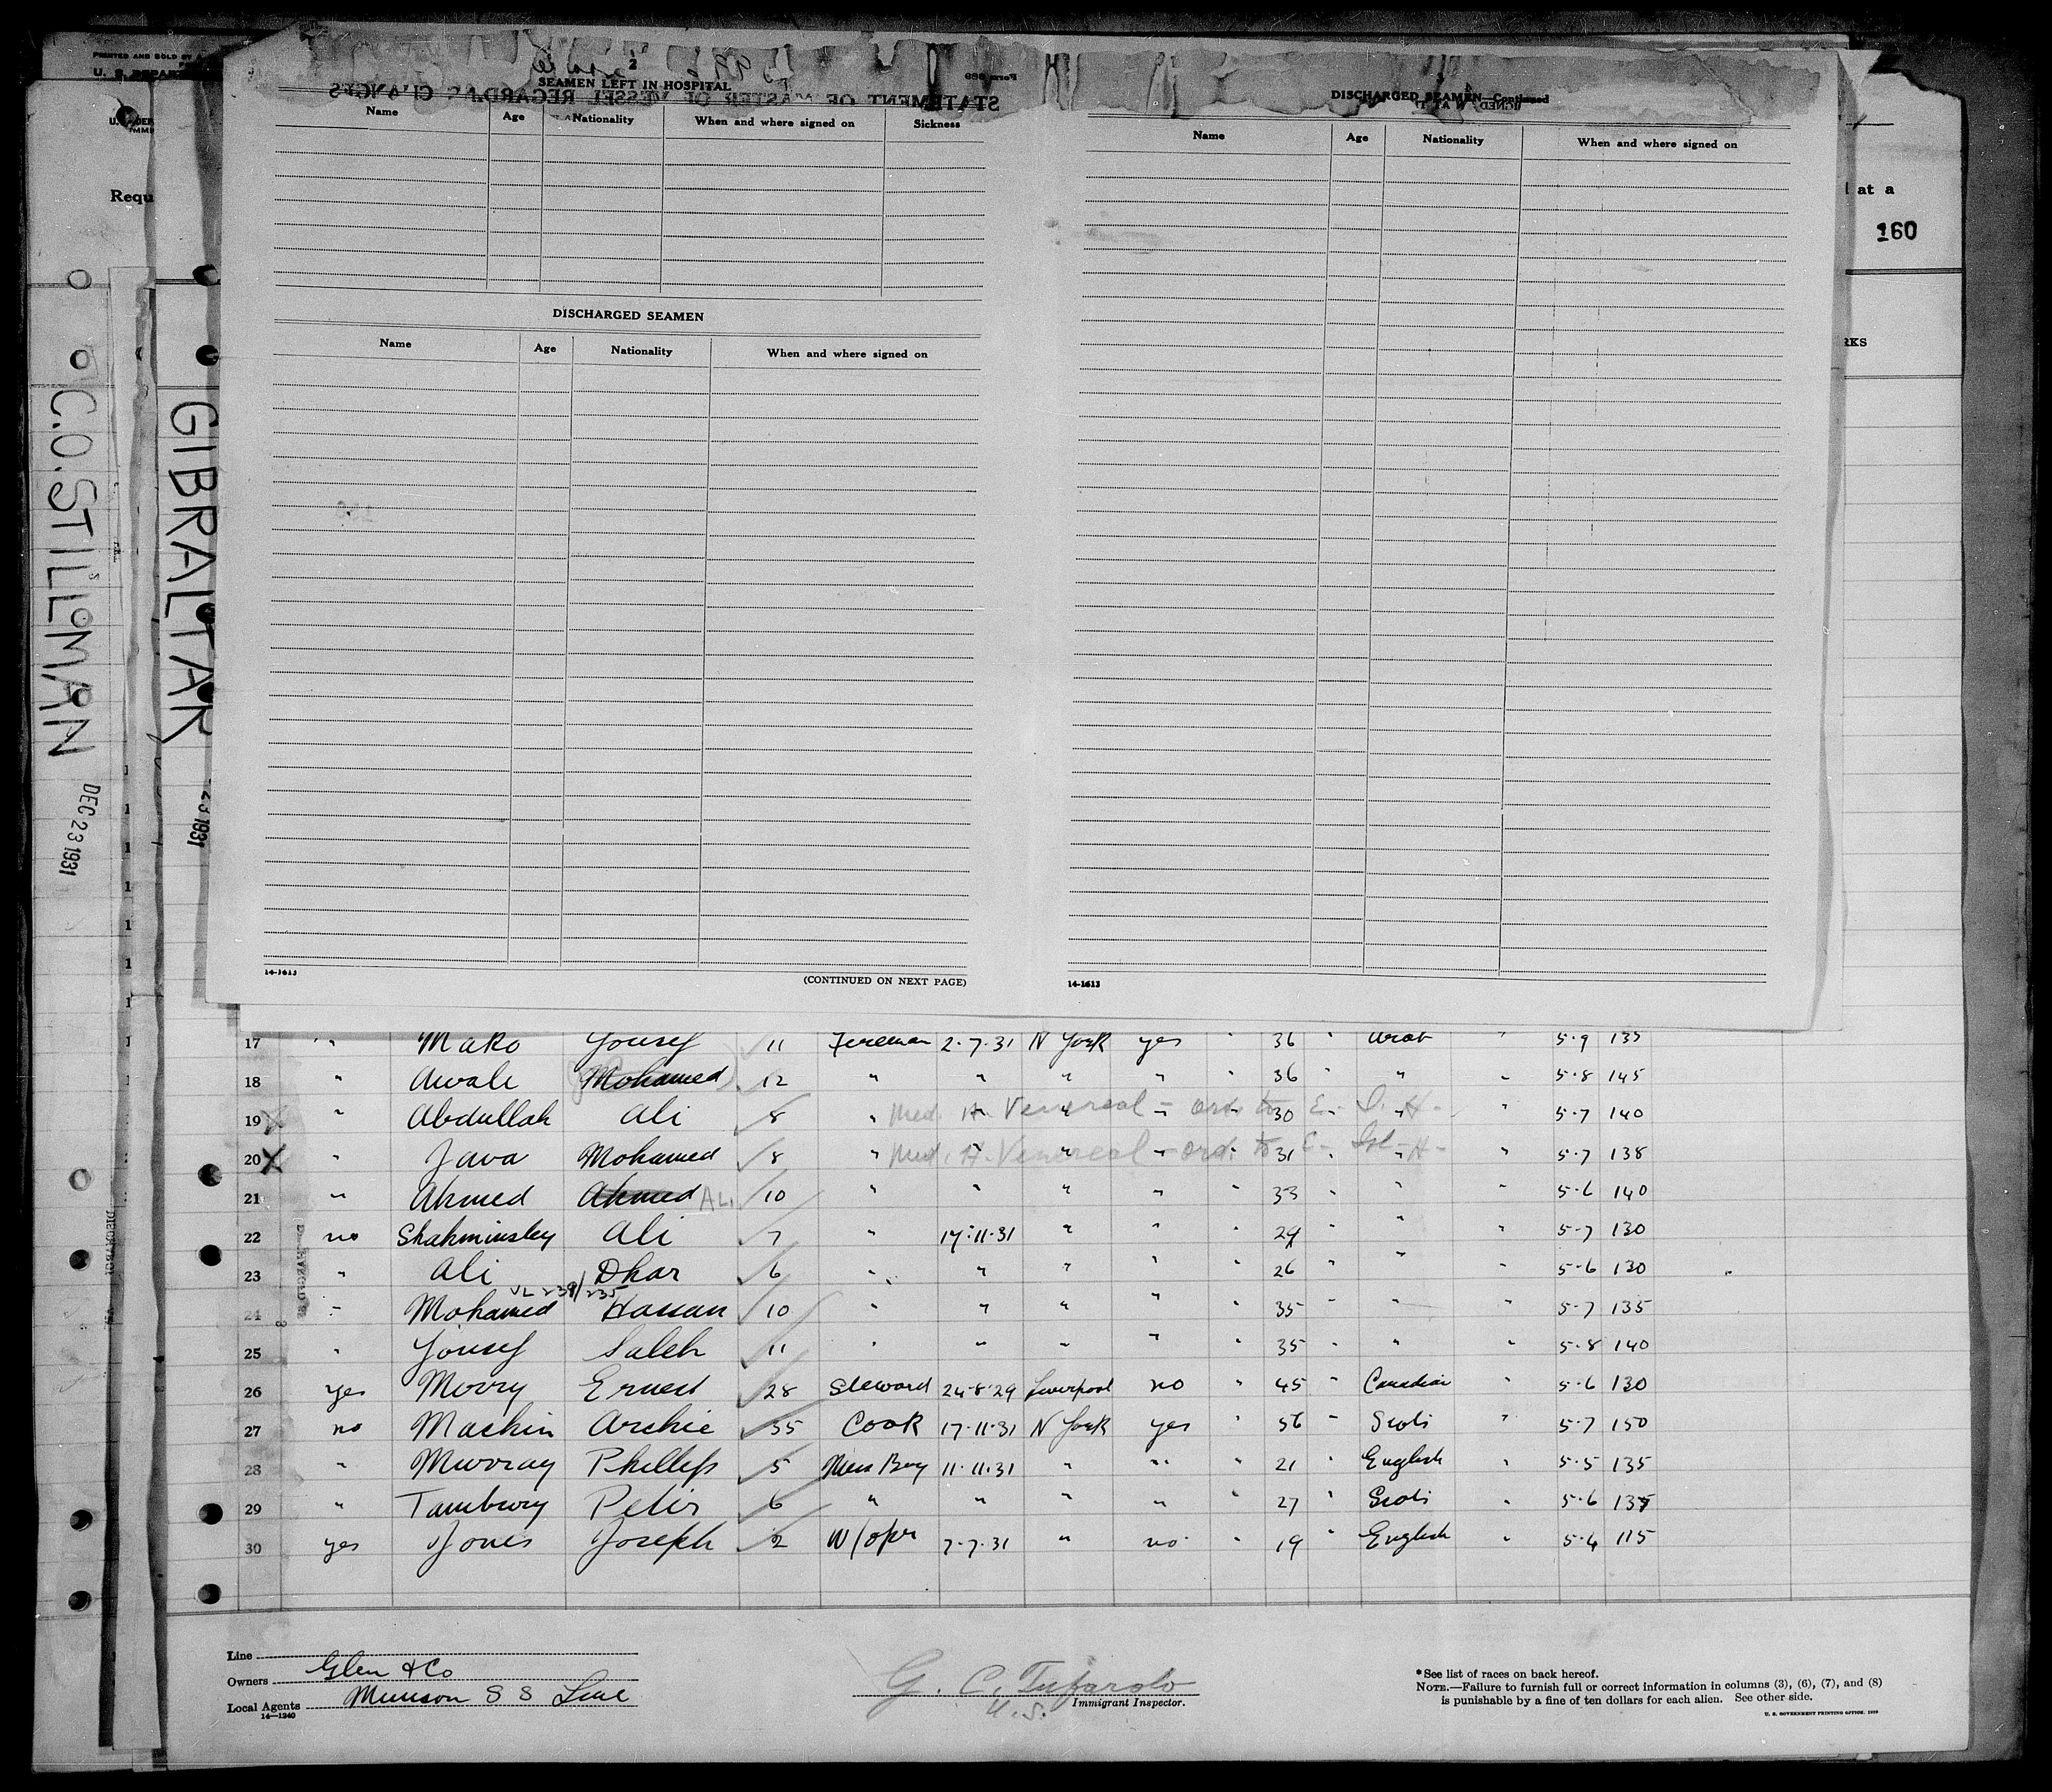 PRINTED AND SOLD BY
U. S. DEPART
Requ
C.O. STILLMAN
DEC 23 1931
GIBRALTAR
23 1931
at a
160
RKS
2
SEAMEN LEFT IN HOSPITAL
STATEMENT OF MASTER OF VESSEL REGARDING CHANGES
Form 689
Name Age Nationality When and where signed on Sickness
DISCHARGED SEAMEN
Name Age Nationality When and where signed on
14-1613
(CONTINUED ON NEXT PAGE)
DISCHARGED SEAMEN—Continued
Name Age Nationality When and where signed on
14-1613
17 " Mako Yousef 11 Fireman 2.7.31 N York yes " 36 " Arab " 5.9 135
18 " Awale Mohamed 12 " " " " " 36 " " 5.8 145
19 X " Abdullah Ali 8 " " " " " 30 " " " 5.7 140
Med. H. Venereal - ord. to E. I. H-
20 X " Java Mohamed 8 " " " " " 31 " " " 5.7 138
Med. H. Venereal - ord. to E- Isl- H-
21 " Ahmed Ahmed ALI 10 " " " " " 33 " " " 5.6 140
22 no Shahminsley Ali 7 " 17.11.31 " " " 29 " " 5.7 130
23 " Ali Dhar 6 " " " " " 26 " " " 5.6 130
24 " Mohamed Hassan 10 " " " " " 35 " " " 5.7 135
25 " Yousef Saleh 11 " " " " " 35 " " " 5.8 140
26 yes Morry Ernest 28 Steward 24.8.29 Liverpool no " 45 " Canadian " 5.6 130
27 no Machin Archie 35 Cook 17.11.31 N York yes " 56 " Scots " 5.7 150
28 " Murray Phillips 5 Mess Boy 11.11.31 " " " 21 " English " 5.5 135
29 " Tambury Peter 6 " " " " " 27 " Scots " 5.6 135
30 yes Jones Joseph 2 W/opr 7.7.31 " no " 19 " English " 5.4 115
Line
Owners Glen & Co
Local Agents Munson S S Line
14—1240
G. C. Tufarolo
U.S. Immigrant Inspector.
*See list of races on back hereof.
NOTE.—Failure to furnish full or correct information in columns (3), (6), (7), and (8)
is punishable by a fine of ten dollars for each alien. See other side.
U. S. GOVERNMENT PRINTING OFFICE. 1929